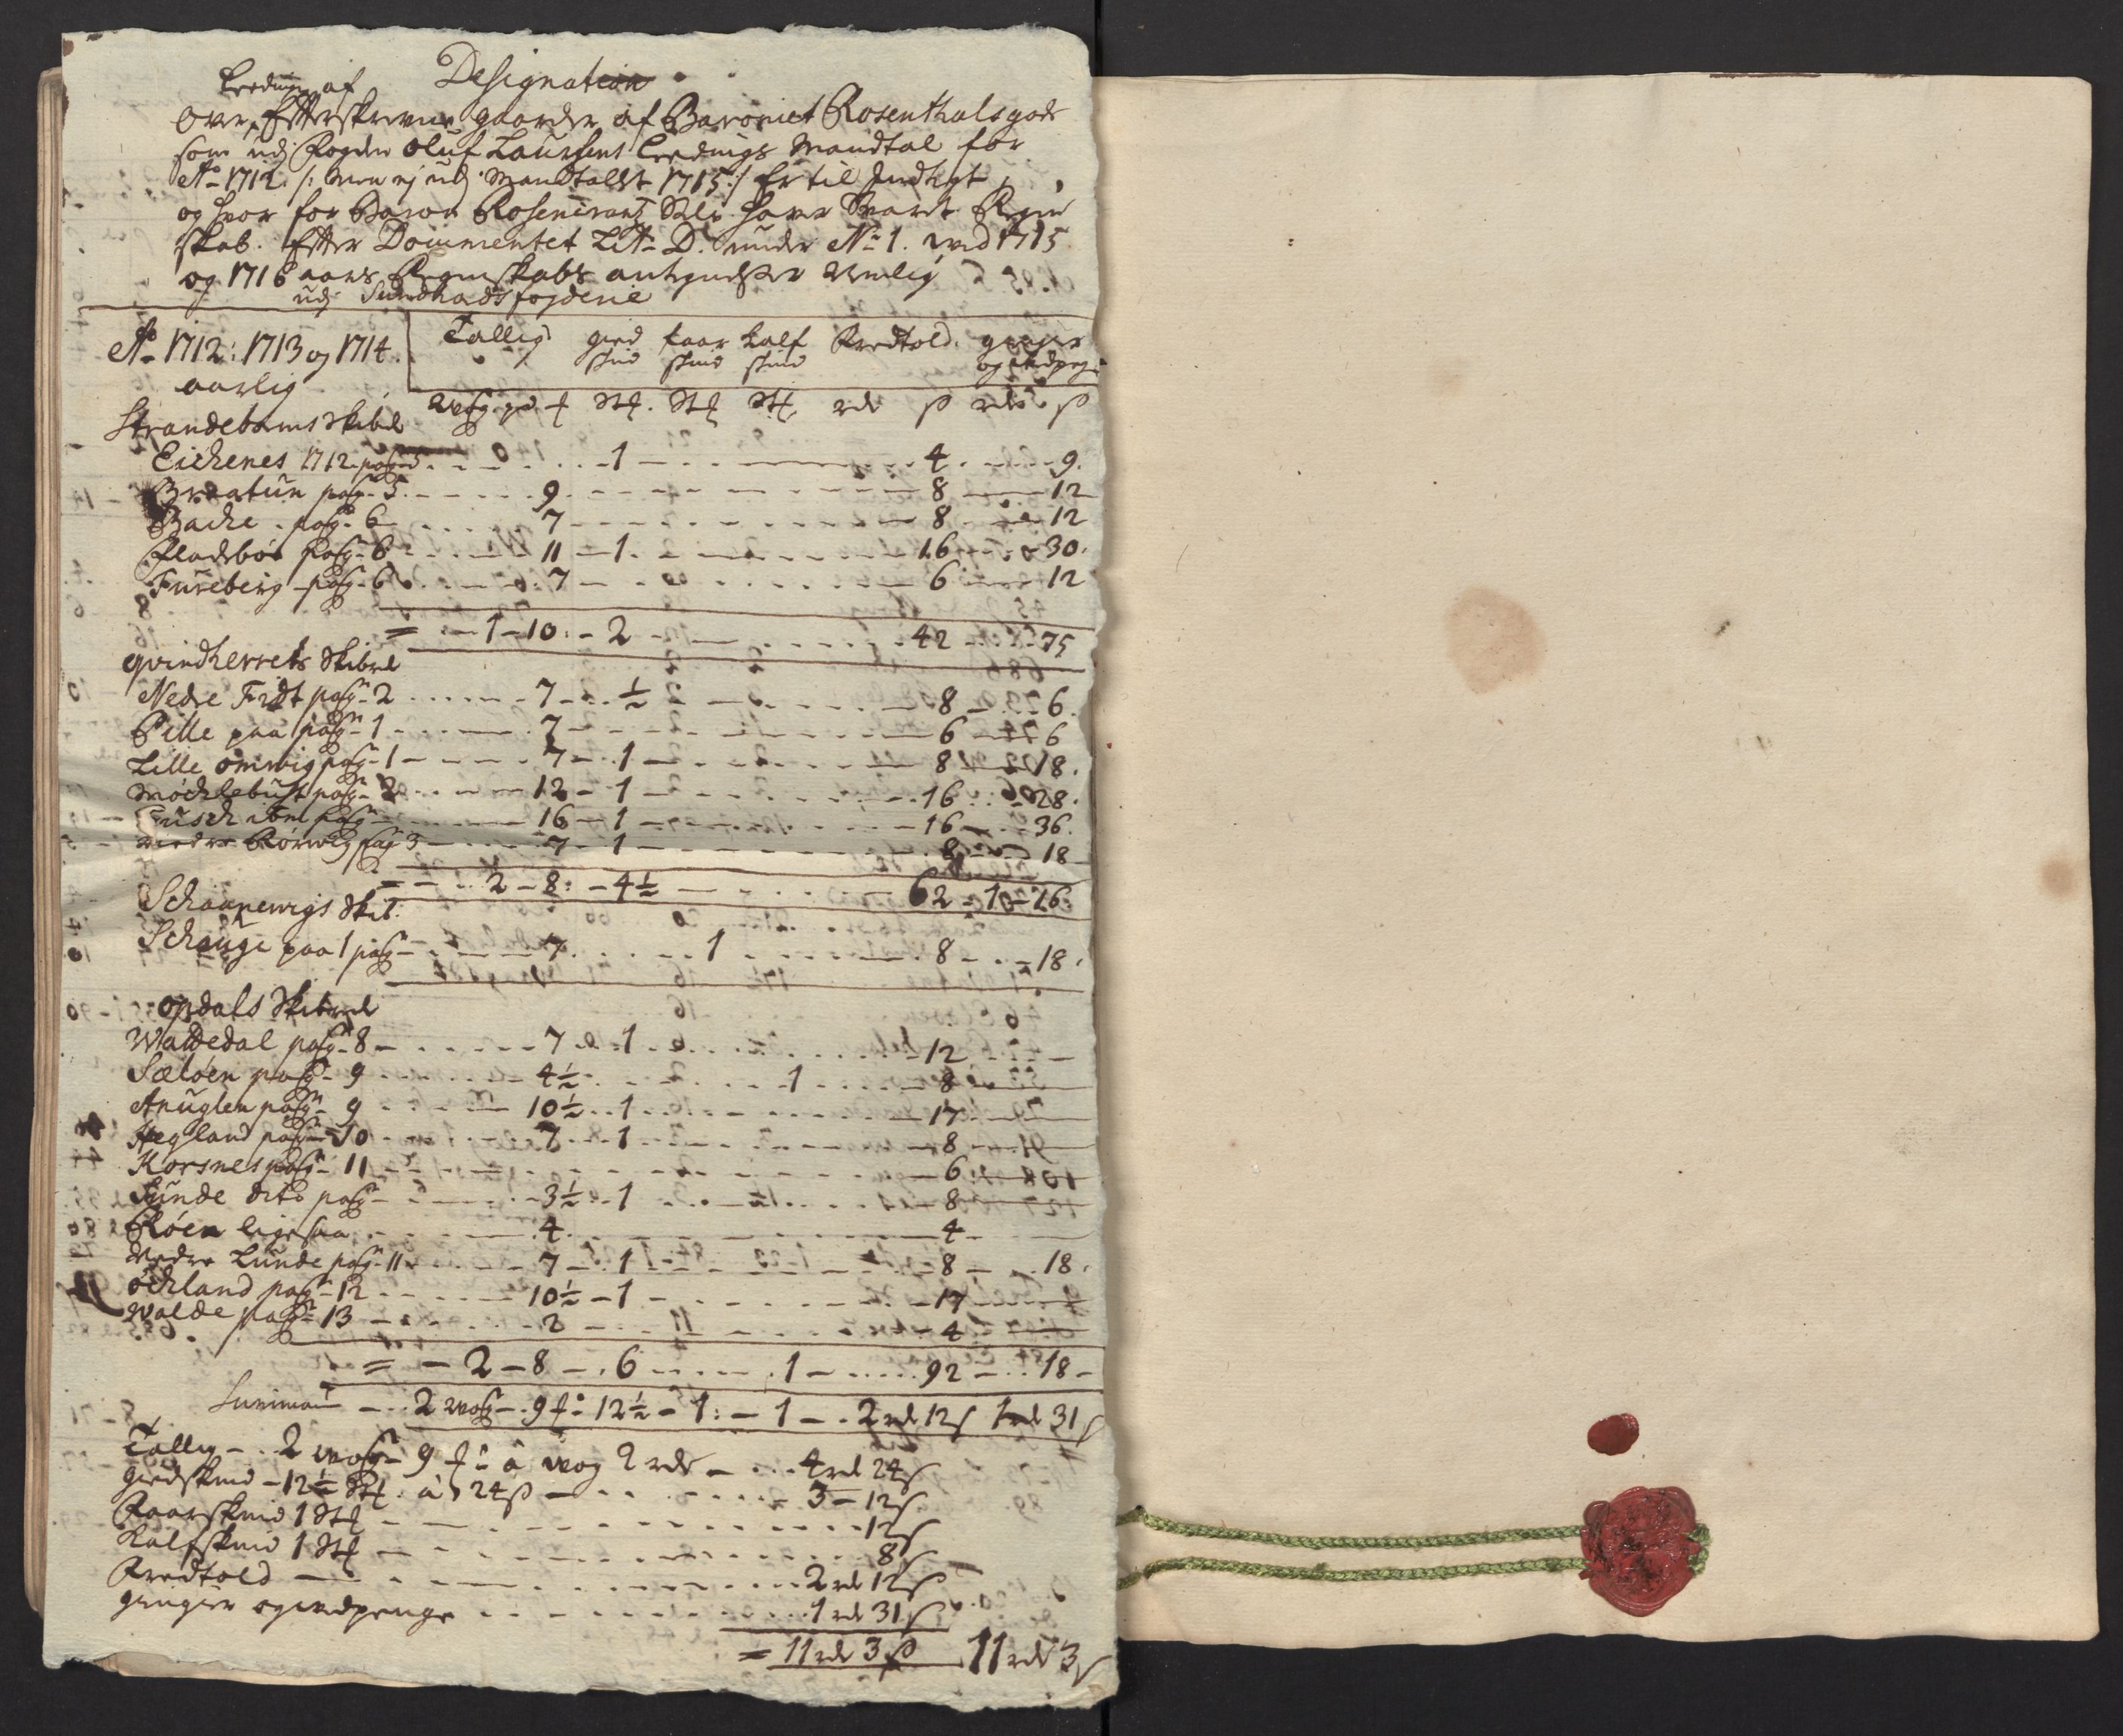 Designation
Leeding af
over Efterskrevne gaarder af Baroniet Rosenthals gods
som udj Fogden Oluf Laursens Leedings Mandtal for
Ao 1712. /: men ej udj Mandtallet 1715 :/ Er til Indtegt
og hvor for Baron Rosencrantz Selv haver giort Regen
skab. Efter Documentet Lit. D. under No 1. ved 1715
og 1716 aars Regenskabs antegnelser Nemlig
udj Sundhords fogderie
Ao 1712: 1713 og 1714.
aarlig
Tallig gied skind faar skind kalf skind Leedtold. giengier og Andpeng
wog. pd. # Stk. Stk Stk. rdr ß rdr ß
Strandebarms Skibrd
Eichenes 1712 pag. 5 1 4 9.
Breatun pag. 5 9 8 12
Backe pag. 6 7 8 12
Fladebøe pag. 6 11 1 16 30.
Fureberg pag. 6 7 6 12
= 1 10 2 42 75
qvindherrets Skibrd
Nedre Fidt pag. 2 7 ½ 8 6.
Pille paa pag. 1 7 6 6
Lille ømwig pag. 1 7 1 8 18.
Møchlebust pag. 2 12 1 16 28.
pag. 16 1 16 36.
Nedre Rørwig pag 3 7 1 8 18
= 2 8 4½ 62 1 16.
Schaanewigs Skib:
Schauge paa 1 pag. 7 1 8 18.
opdals Skibrd
Waldedal pag. 8 7 1 12
Sæløen pag. 9 4½ 1 8
Anuglen pag. 9 10½ 1 17
Hegland pag. 10 7 1 8
Korsnes pag. 11 6
Sunde dito pag. 3½ 1 8
Røen ligesaa 4 4
Nedre Lunde pag. 11 7 1 8 18.
øckland pag. 12 10½ 1 17
Walde pag. 13 2 4
= 2 8 6 1 92 18
Summa 2 wog 9 # 12½ 1: 1 2 rd 12 ß 1 rd 31 ß
Tallig 2 wog 9 # â wog 2 rdr 4 rd 24 ß
giedskind 12½ Stk. â 24 ß 3 - 12 ß
Faarskind 1 Stk 12 ß
Kalfskind 1 Stk 8 ß
Leedtold 2 rd 12 ß
giengier og andpenge 1 rd 31 ß
= 11 rd 3 ß 11 rd 3 ß